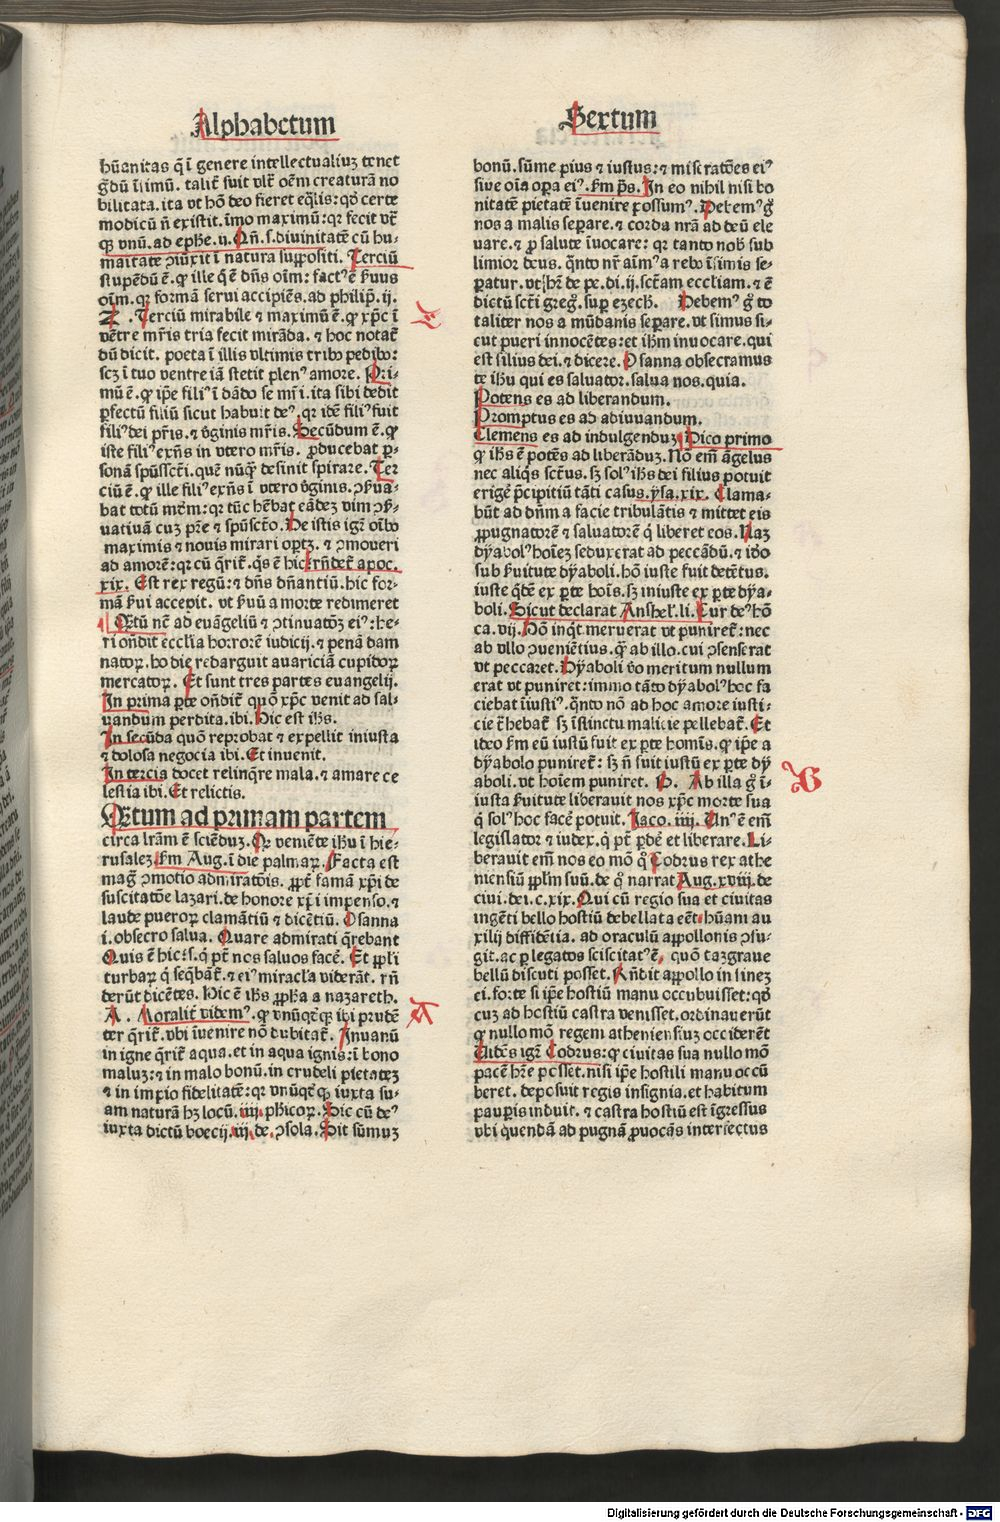 Alphabetum
hūanitas q̄ ī genere intellectualiuꝫ tenet
g̊dū īfimū . talit̄ fuit vlt̄ oēm creaturā no
bilitata . ita vt hō deo fieret eq̄lis : qd̛ certe
modicū n̄ existit . īmo maximū : qꝛ fecit vtrū
qꝫ vnū . ad ephe . ij . Qn̄ . s . diuinitatē cū hu⸗
manitate ꝯiūxit ī natura suppositi . Terciū
stupēdū ē . ꝙ ille q̄ ē dn̄s oīm : factꝰ ē ẜuus
oīm . qꝛ formā serui accipiēs . ad philip̄ . ij .
Z . Terciū mirabile ⁊ maximū ē . ꝙ xp̄c ī
vētre mr̄is tria fecit mirāda . ⁊ hoc notat̄
dū dicit . poeta ī illis vltimis tribꝰ pedibꝰ :
scꝫ ī tuo ventre iā stetit plenꝰ amore . Pri⸗
mū ē . ꝙ ip̄e filiꝰ ī dādo se mr̄i . ita sibi dedit
ꝑfectū filiū sicut habuit deꝰ . qꝛ idē filiꝰ fuit
filiꝰ dei pr̄is . ⁊ v̄ginis mr̄is . Secūdum ē . ꝙ
iste filiꝰ exn̄s in vtero mr̄is . ꝓducebat ꝑ⸗
sonā spūssct̄i . quē nūqꝫ desinit spirare . Ter
ciū ē . ꝙ ille filiꝰ exn̄s ī vtero v̄ginis . ꝯẜua⸗
bat totū mr̄em : qꝛ tūc hēbat eādeꝫ vim ꝯẜ⸗
uatiuā cuꝫ pr̄e ⁊ spūsct̄o . De istis igr̄ oībꝰ
maximis ⁊ nouis mirari optꝫ . ⁊ ꝯmoueri
ad amorē : qꝛ cū q̄rit̄ . q̄s ē hic . Rn̄det̄ apoc .
xix . Est rex regū : ⁊ dn̄s dn̄antiū . hic for⸗
mā ẜui accepit . vt ẜuū a morte redimeret
Q̄tū nc̄ ad euāgeliū ⁊ ꝯtinuatōꝫ eiꝰ : he⸗
ri on̄dit eccl̄ia horrorē iudicij . ⁊ penā dam
natoꝝ . hodie redarguit auariciā cupidoꝝ
mercatoꝝ . Et sunt tres partes euangelij .
In prima ꝑte on̄dit̄ quō xp̄c venit ad sal⸗
uandum perdita . ibi . Hic est ih̄s .
In secūda quō reprobat ⁊ expellit iniusta
⁊ dolosa negocia ibi . Et inuenit .
In tercia docet relinq̄re mala . ⁊ amare ce
lestia ibi . Et relictis .
Q̄tum ad primam partem
circa lr̄am ē sciēduꝫ . Qꝛ veniēte ih̄u ī hie⸗
rusaleꝫ . ẜm Aug . ī die palmaꝝ . Facta est
mag̊ ꝯmotio admiratōis . ꝓpt̄ famā xp̄i de
suscitatōe lazari . de honore xp̄i impenso . ⁊
laude pueroꝝ clamātiū ⁊ dicētiū . Osanna
i . obsecro salua . Quare admirati q̄rebant
Quis ē hic : s . q̇ pt̄ nos saluos facē . Et ppl̄i
turbaꝝ q̇ seq̄bāt̄ . ⁊ eiꝰ miracl̄a viderāt . rn̄
derūt dicētes . Hic ē ih̄s ꝓph̄a a nazareth .
A . Moralit̄ videmꝰ . ꝙ vnūqd̛qꝫ ibi prudē
ter q̄rit̄ . vbi īuenire nō dubitat̄ . Inuanū
in igne q̄rit̄ aqua . et in aqua ignis : ī bono
maluꝫ : ⁊ in malo bonū . in crudeli pietateꝫ
⁊ in impio fidelitatē : qꝛ vnūqd̛qꝫ iuxta su⸗
am naturā hꝫ locū . iiij . phicoꝝ . Sic cū deꝰ
iuxta dictū boecij . iij . de . ꝯsola . Sit sūmuꝫ
Z
A
Sextum
bonū . sūme pius ⁊ iustus : ⁊ miseratōes eiꝰ
sup̄ oīa oꝑa eiꝰ . ẜm ps̄ . In eo nihil nisi bo
nitatē pietatē īuenire possumꝰ . Debemꝰ g̊
nos a malis seꝑare . ⁊ corda nr̄a ad deū ele
uare . ⁊ ꝓ salute īuocare : qꝛ tanto nob̄ sub
limior deus . q̄nto nr̄ aīmꝰ a rebꝰ īfimis se⸗
ꝑatur . vt hr̄ de pe . di . ij . sct̄am eccliam . ⁊ ē
dictū sct̄i greḡ . suꝑ ezech . Debemꝰ g̊ to
taliter nos a mūdanis seꝑare . vt simus si⸗
cut pueri innocētes : et ih̄m inuocare . qui
est filius dei . ⁊ dicere . Osanna obsecramus
te ih̄u qui es saluator . salua nos . quia .
Potens es ad liberandum .
Promptus es ad adiuuandum .
Clemens es ad indulgenduꝫ Dico primo
ꝙ ih̄s ē potēs ad liberāduꝫ . Nō em̄ āgelus
nec aliq̄s sct̄us . sꝫ solꝰ ih̄s dei filius potuit
erigē p̄cipitiū tāti casus . ysa . xix . Clama⸗
būt ad dn̄m a facie tribulātis ⁊ mittet eis
ꝓpugnatorē ⁊ saluatorē q̇ liberet eos . Naꝫ
dẏabolꝰ hoīeꝫ seduxerat ad peccādū . ⁊ iō
sub ẜuitute dẏaboli . hō iuste fuit detētus .
iuste q̇dē ex ꝑte hoīs . sꝫ iniuste ex ꝑte dẏa⸗
boli . Sicut declarat Anshel̛ . li . Cur deꝰ hō
ca . vij . Hō inq̇t meruerat vt puniret̄ : nec
ab vllo ꝯueniētius . q̄ꝫ ab illo . cui ꝯsenserat
vt peccaret . Dẏaboli v̄o meritum nullum
erat vt puniret : immo tāto dẏabolꝰ hoc fa
ciebat īiustiꝰ . q̄nto nō ad hoc amore iusti⸗
cie t̄hebat̄ sꝫ īstinctu malicie pellebat̄ . Et
ideo ẜm eū iustū fuit ex ꝑte homīs . ꝙ ip̄e a
dẏabolo puniret̄ : sꝫ n̄ fuit iustū ex ꝑte dẏ
aboli . vt hoīem puniret . B . Ab illa g̊ ī⸗
iusta ẜuitute liberauit nos xp̄c morte sua
q̇ solꝰ hoc facē potuit . Jaco . iiij . Vnꝰ ē em̄
legislator ⁊ iudex . q̇ pt̄ ꝑdē et liberare . Li⸗
berauit em̄ nos eo mō q̊ Codrus rex athe
niensiū ppl̄m suū . de q̊ narrat Aug . xviij . de
ciui . dei . c . xix . Qui cū regio sua et ciuitas
ingēti bello hostiū debellata eēt . hūani au
xilij diffidētia . ad oraculū appollonis ꝯfu⸗
git . ac ꝑ legatos sciscitatꝰ ē , quō taꝫ graue
bellū discuti posset . Rn̄dit appollo in fineꝫ
ei . forte si ip̄e hostiū manu occubuisset : qd̛
cuꝫ ad hostiū castra venisset . ordinauerūt
ꝙ nullo mō regem atheniensiuꝫ occiderēt
Vidēs igr̄ Codrus : ꝙ ciuitas sua nullo mō
pacē hr̄e posset . nisi ip̄e hostili manu occū
beret . deposuit regis insignia . et habitum
pauꝑis induit . ⁊ castra hostiū est īgressus
vbi quendā ad pugnā ꝓuocās interfectus
B
Digitalisierung gefördert durch die Deutsche Forschungsgemeinschaft - DFG